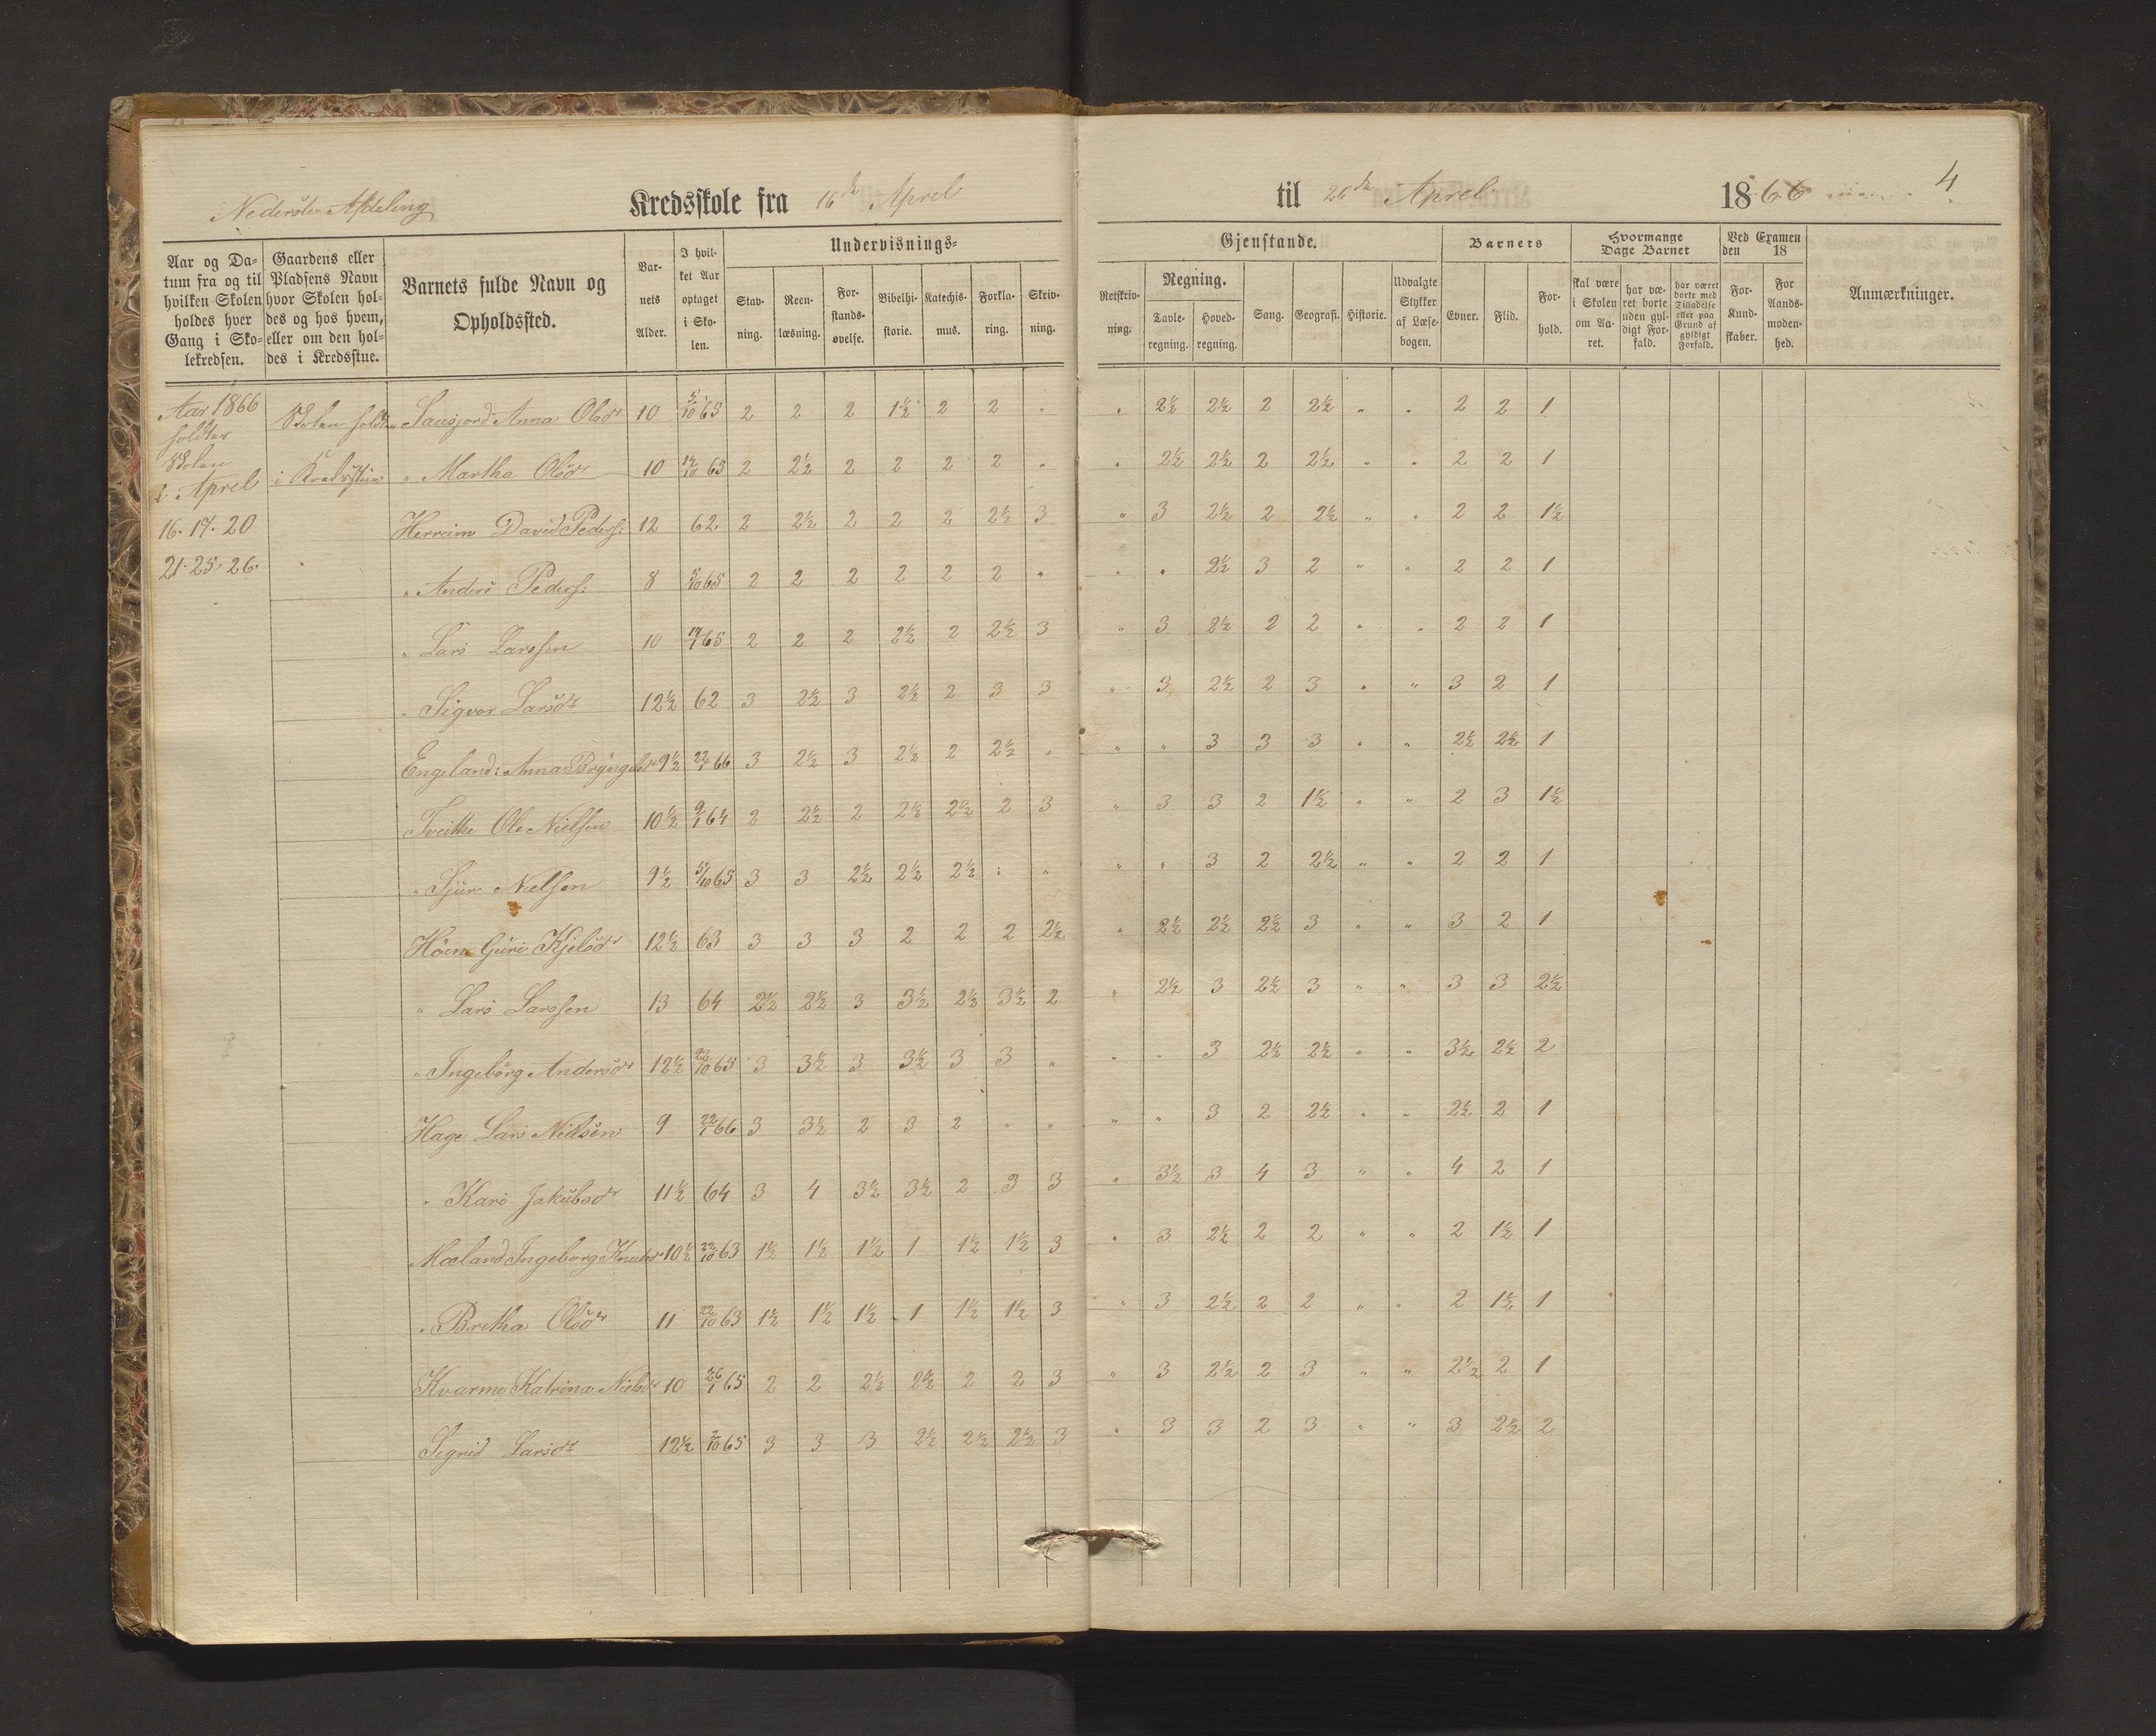 Nederste Afdeling Kredsskole fra 16de Aprel til 26de Aprel 1866 4
Aar og Da-
tum fra og til
hvilken Skolen
holdes hver
Gang i Sko-
lekredsen.
Gaardens eller
Pladsens Navn
hvor Skolen hol-
des og hos hvem,
eller om den hol-
des i Kredsstue.
Barnets fulde Navn og
Opholdssted.
Bar-
nets
Alder.
I hvil-
ket Aar
optaget
i Sko-
len.
Undervisnings-
Stav-
ning.
Reen-
læsning.
For-
stands-
øvelse.
Bibelhi-
storie.
Katechis-
mus.
Forkla-
ring.
Skriv-
ning.
Gjenstande.
Retskriv-
ning.
Regning.
Tavle-
regning.
Hoved-
regning.
Sang.
Geografi.
Historie.
Udvalgte
Stykker
af Læse-
bogen.
Barnets
Evner.
Flid.
For-
hold.
Hvormange
Dage Barnet
skal være
i Skolen
om Aa-
ret.
har væ-
ret borte
uden gyl-
digt For-
fald.
har været
borte med
Tilladelse
eller paa
Grund af
gyldigt
Forfald.
Ved Examen
den 18
For-
Kund-
skaber.
For
Aands-
moden-
hed.
Anmærkninger.
Aar 1866
holdtes
Skolen
i Aprel
16. 17. 20
21. 25. 26.
Skolen holdtes
i Kredsstue
Sausjord Anna Olsdr 10 5/10 65 2 2 2 1½ 2 2 " " 2½ 2½ 2 2½ " " 2 2 1
" Martha Olsdr 10 14/10 65 2 2½ 2 2 2 2 " " 2½ 2½ 2 2½ " " 2 2 1
Herreim David Peders: 12 62 2 2½ 2 2 2 2½ 3 " 3 2½ 2 2½ " " 2 2 1½
" Anders Peders: 8 5/10 65 2 2 2 2 2 2 " " " 2½ 3 2 " " 2 2 1
" Lars Larssen 10 19/1 65 2 2 2 2½ 2 2½ 3 " 3 2½ 2 2 " " 2 2 1
" Sigvor Larsdt 12½ 62 3 2½ 3 2½ 2 3 3 " 3 2½ 2 3 " " 3 2 1
Engeland: Anna Bryngelsdr 9½ 22/1 66 3 2½ 3 2½ 2 2½ " " " 3 3 3 " " 2½ 2½ 1
Tveithe Ole Nielsen 10½ 9/1 64 2 2½ 2 2½ 2½ 2 3 " 3 3 2 1½ " " 2 3 1½
" Sjur Nielsen 9½ 5/10 65 3 3 2½ 2½ 2½ " " " " 3 2 2½ " " 2 2 1
Høen Guri Kjelsdr 12½ 63 3 3 3 2 2 2 2½ " 2½ 2½ 2½ 3 " " 3 2 1
" Lars Larssen 13 64 2½ 2½ 3 3½ 2½ 3½ 2 " 2½ 3 2½ 3 " " 3 3 2½
" Ingebørg Andersdr 12½ 22/10 65 3 3½ 3 3½ 3 3 " " " 3 2½ 2½ " " 3½ 2½ 2
Hage Lars Nielsen 9 22/1 66 3 3½ 2 3 2 " " " " 3 2 2½ " " 2½ 2 1
" Kari Jakobsdr 11½ 64 3 4 3½ 3½ 2 3 3 " 3½ 3 4 3 " " 4 2 1
Mæland Ingeborg Knutsdr 10½ 22/10 63 1½ 1½ 1½ 1 1½ 1½ 3 " 3 2½ 2 2 " " 2 1½ 1
" Brita Olsdr 11 22/10 63 1½ 1½ 1½ 1 1½ 1½ 3 " 3 2½ 2 2 " " 2 1½ 1
Kvarme Katrina Nielsdr 10 26/1 65 2 2 2½ 2½ 2 2 3 " 3 2½ 2 3 " " 2½ 2 1
Sigrid Larsdt 12½ 2/10 65 3 3 3 2½ 2½ 2½ 3 " 3 3 2 3 " " 3 2½ 2